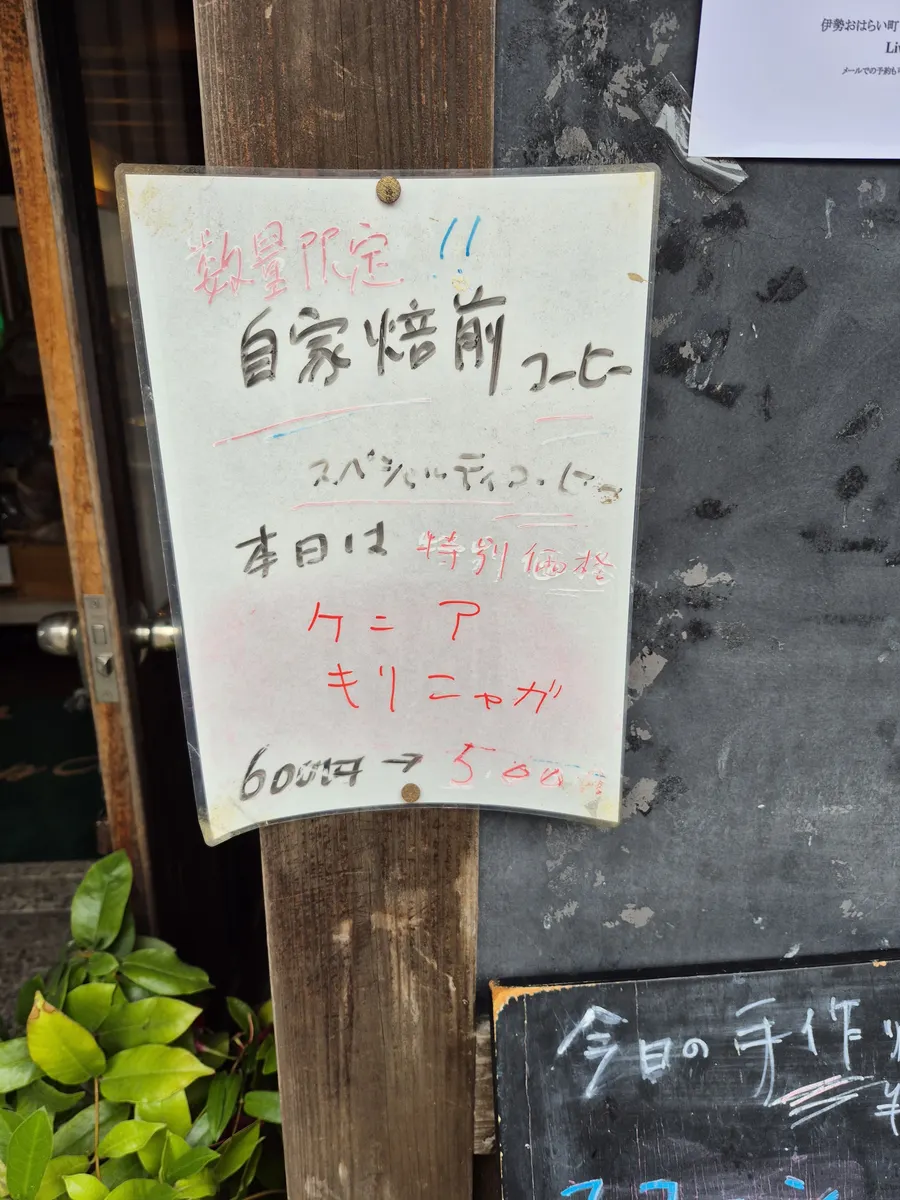 伊勢おはらい町
Li
メールでの予約も
数量限定!!
自家焙前コーヒー
スペシャルティコーヒー
本日は 特別価格
ケニア
キリニャガ
600円→500円
今日の手作
スコーン